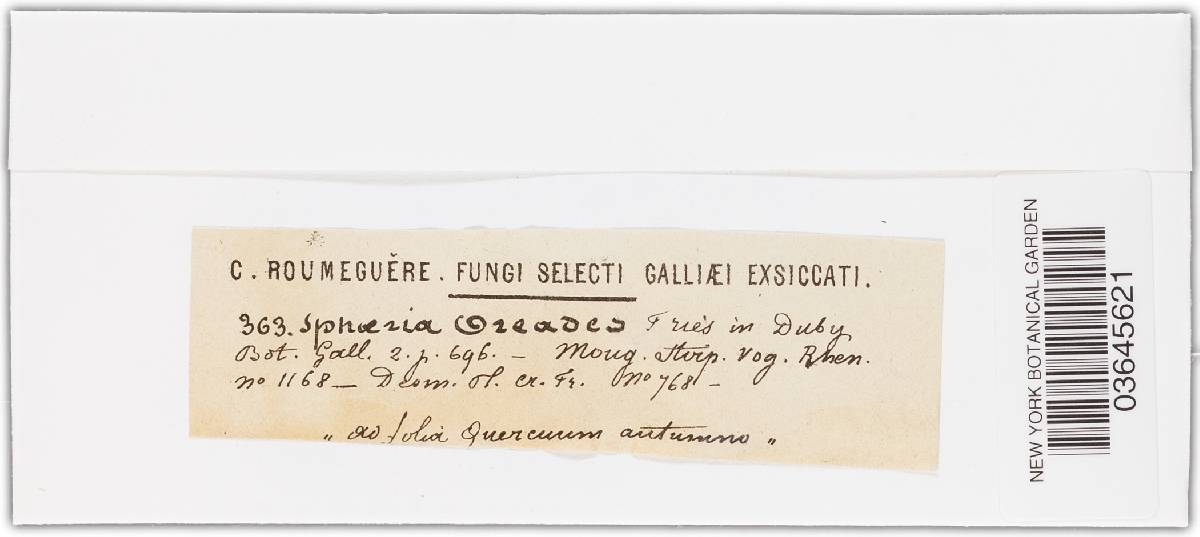 C. ROUMEGUĚRE. FUNGI SELECTI GALLIÆI EXSICCATI.
363. Sphæria Oreades Friès in Duby
Bot. Gall. 2. p. 696. — Moug. Stirp. Vog. Rhen.
nº 1168 — Desm. Pl. cr. Fr. Nº 768 —
„ ad folia Quercuum autumno „
NEW YORK BOTANICAL GARDEN
03645621